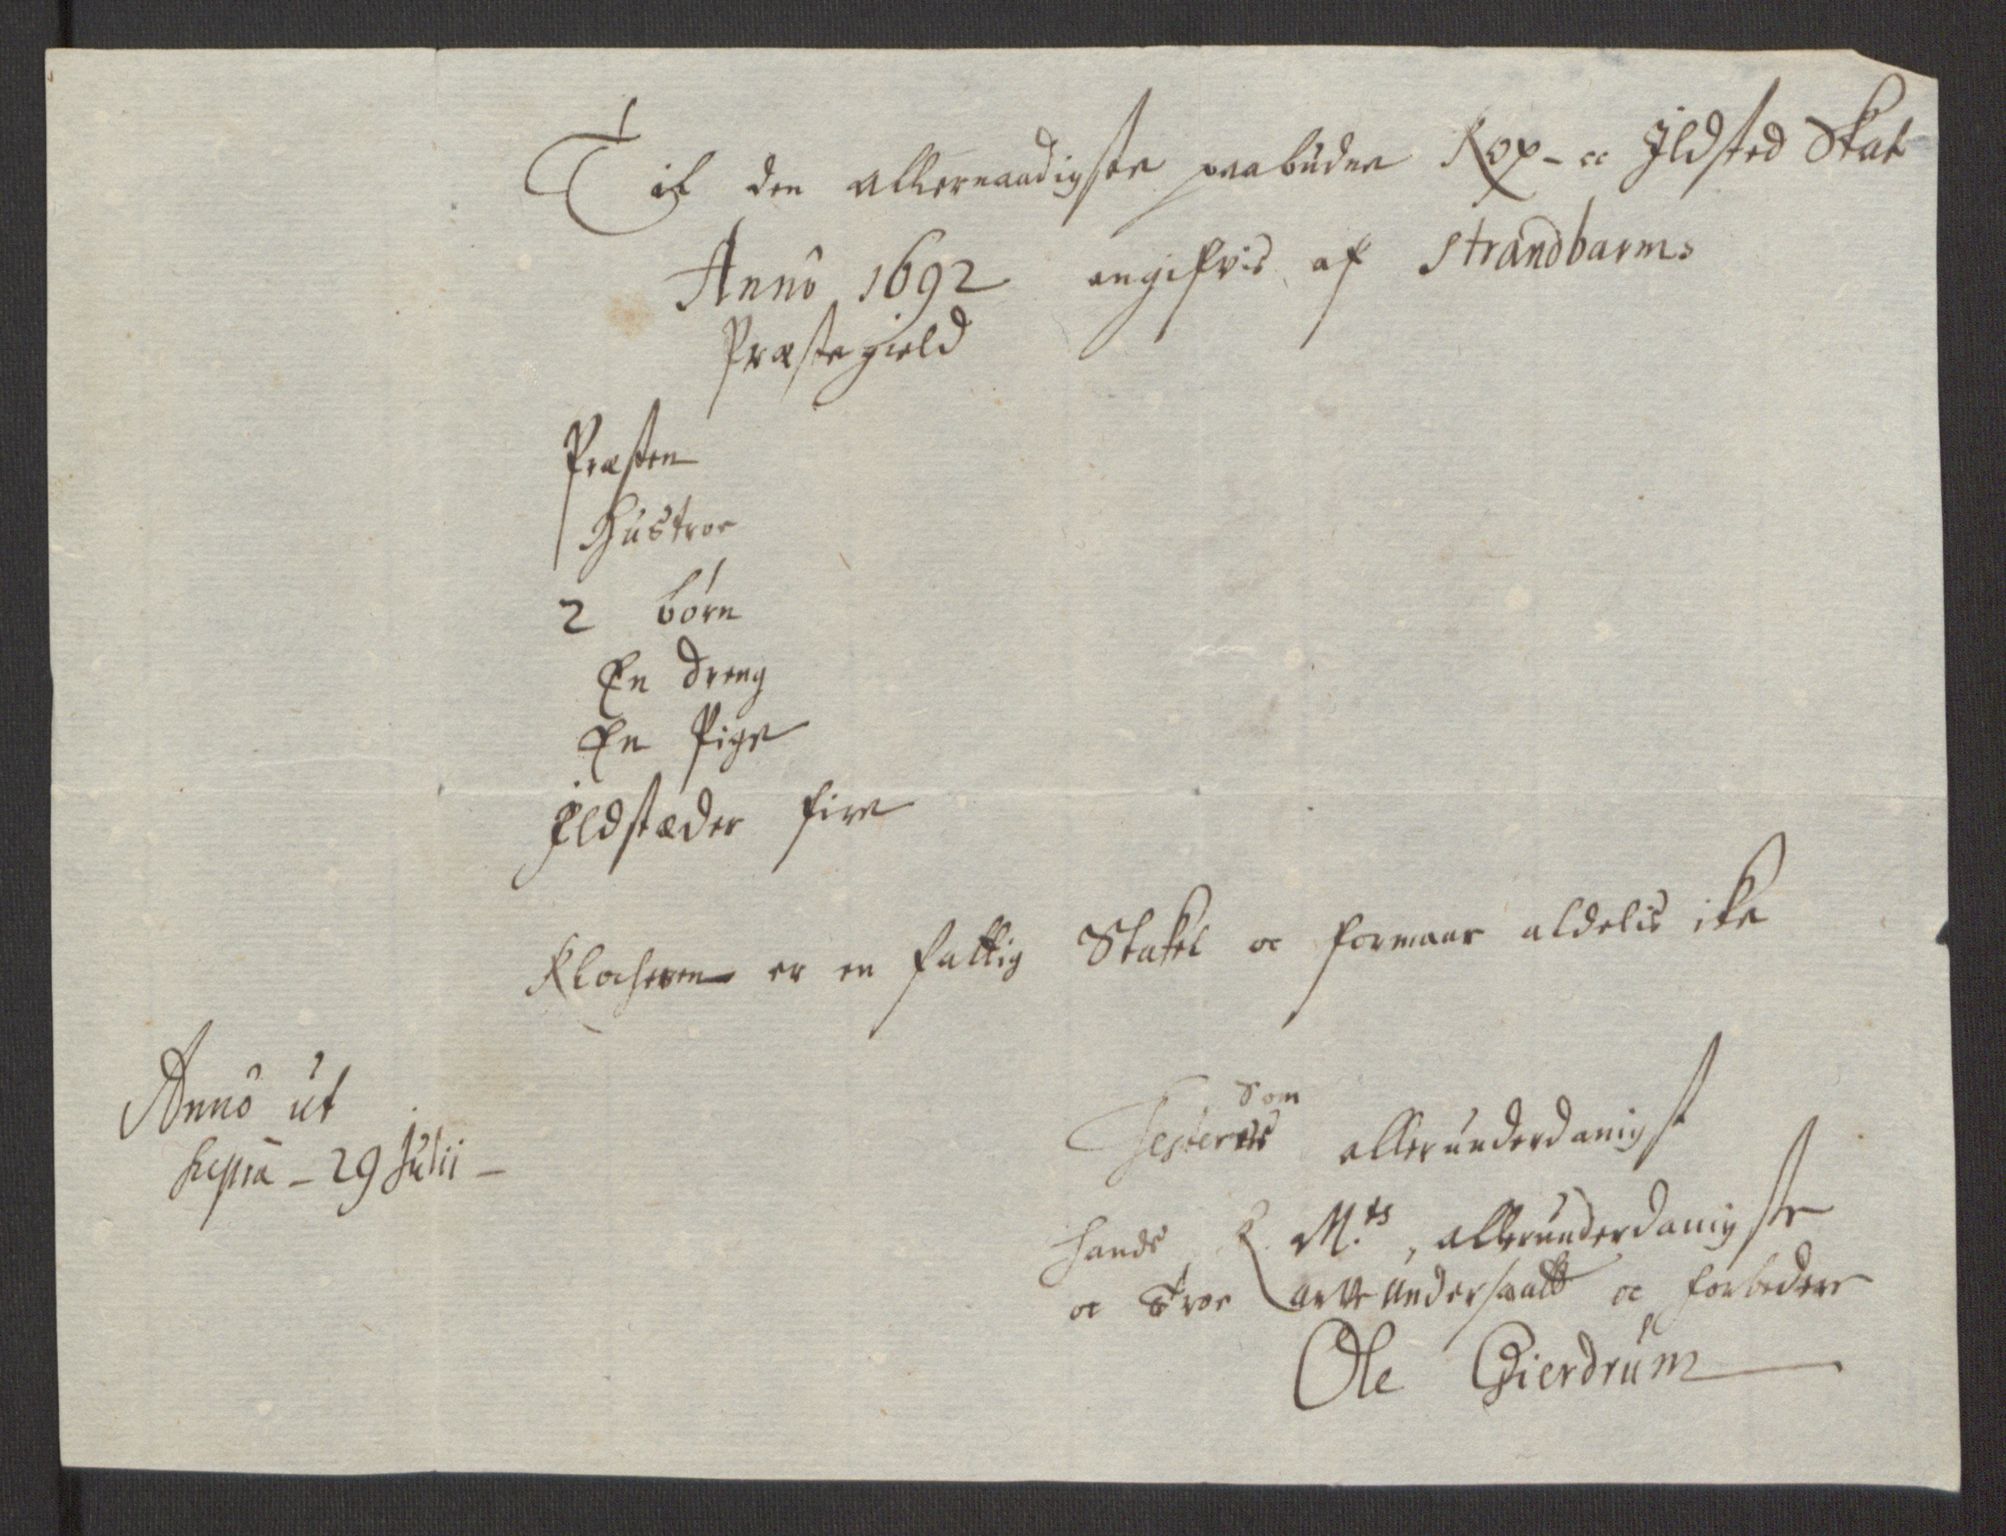 Til den allernaadigste paabudne Kop- oc Ildsted Skat
Anno 1692 angifvis af Strandbarms
Præstegield
Præsten
Hustroe
2 børn
En dreng
En Pige
Ildstæder fire
Klocheren er en fattig Stakel oc formaar aldelis ike
Anno ut
supra - 29 Julii -
som
Testerer allerunderdanigst
Hands K. M.ts allerunderdanigste
oc troe arfve undersaatt oc forbedere
Ole Gierdrum